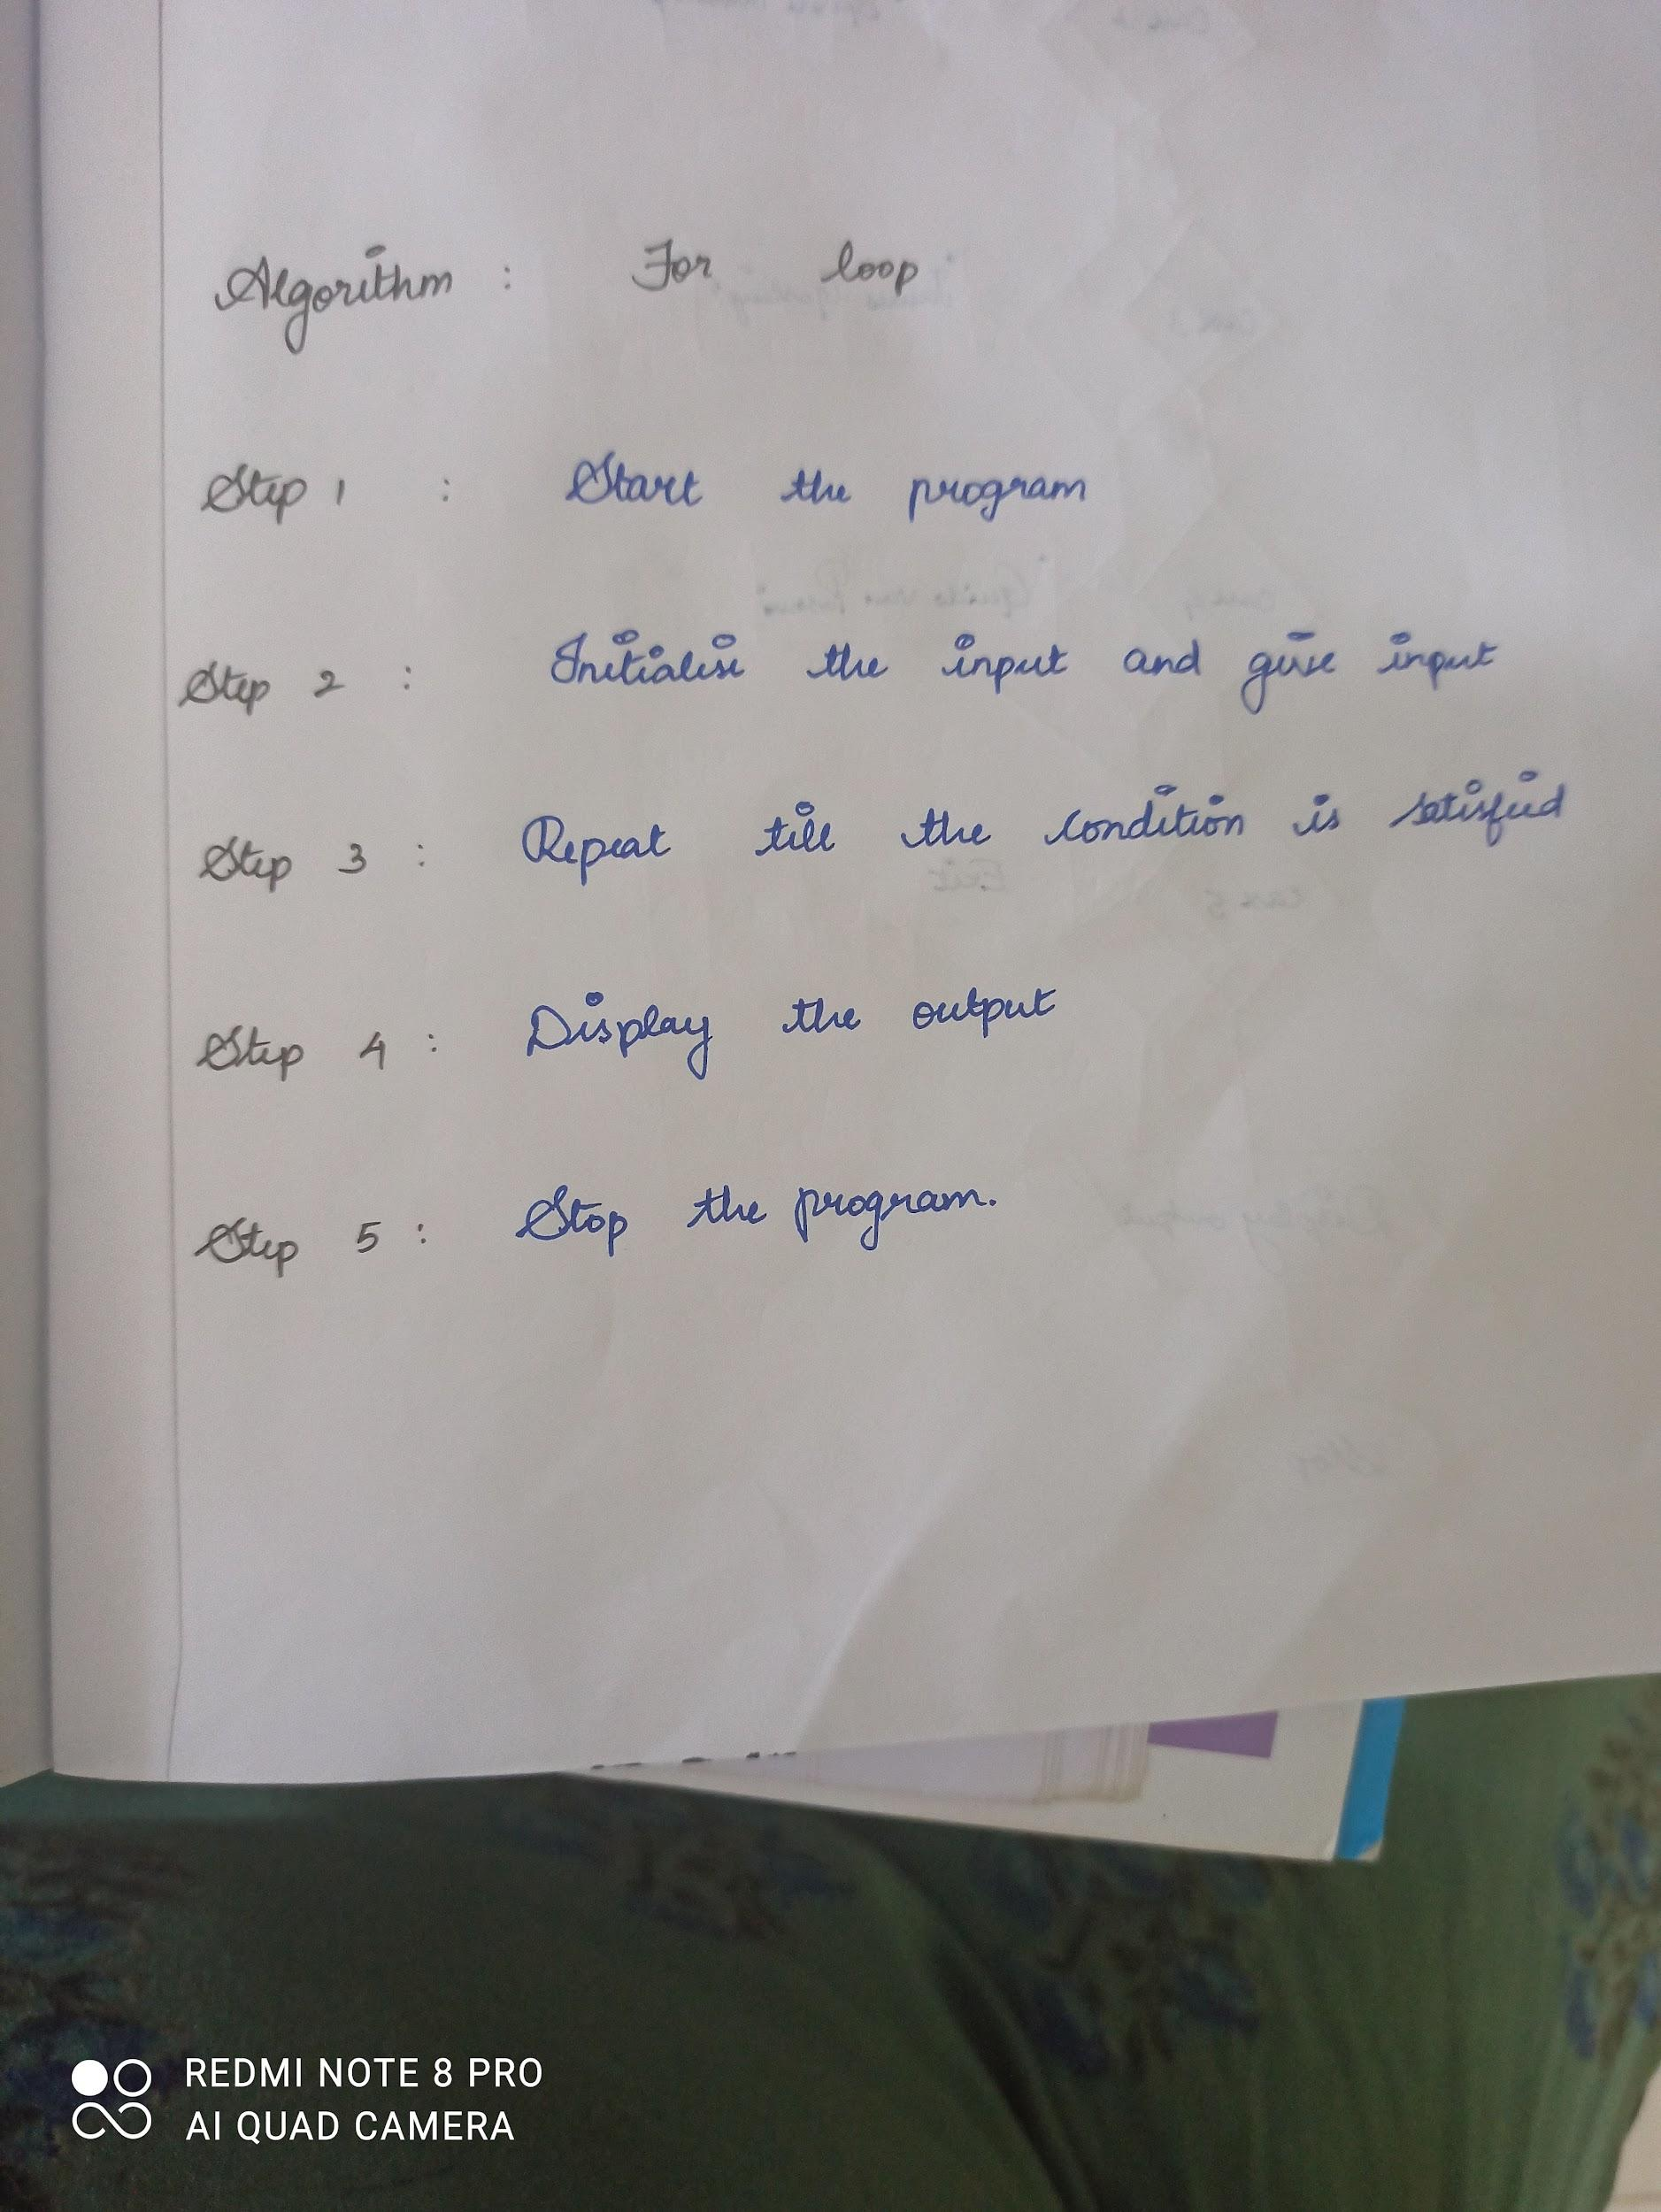 Algorithm : For loop
Step 1 : Start the program
Step 2 : Initialise the input and give input
Step 3 : Repeat till the condition is satisfied
Step 4 : Display the output
Step 5 : Stop the program.
REDMI NOTE 8 PRO
AI QUAD CAMERA